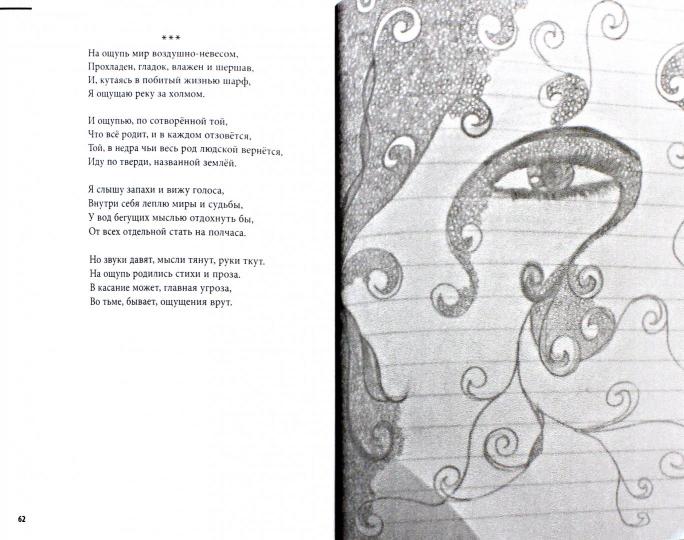 ***
На ощупь мир воздушно-невесом,
Прохладен, гладок, влажен и шершав,
И, кутаясь в побитый жизнью шарф,
Я ощущаю реку за холмом.

И ощупью, по сотворённой той,
Что всё родит, и в каждом отзовётся,
Той, в недра чьи весь род людской вернётся,
Иду по тверди, названной землёй.

Я слышу запахи и вижу голоса,
Внутри себя леплю миры и судьбы,
У вод бегущих мыслью отдохнуть бы,
От всех отдельной стать на полчаса.

Но звуки давят, мысли тянут, руки ткут.
На ощупь родились стихи и проза.
В касание может, главная угроза,
Во тьме, бывает, ощущения врут.
62